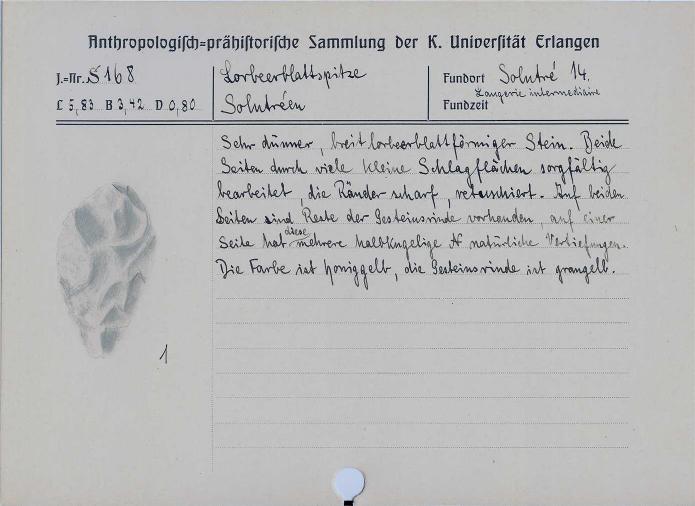 Anthropologisch=prähistorische Sammlung der K. Universität Erlangen
J.=Nr. S168
Lorbeerblattspitze
Fundort Solutré 14.
Laugerie intermediaire
L 5,83 B 3,42 D 0,80
Solutréen
Fundzeit
Sehr dünner, breit lorbeerblattförmiger Stein. Beide
Seiten durch viele kleine Schlagflächen sorgfältig
bearbeitet, die Ränder scharf, retuschiert. Auf beiden
Seiten sind Reste der Gesteinsrinde vorhanden, auf einer
diese
Seite hat mehrere halbkugelige natürliche Vertiefungen.
Die Farbe ist honiggelb, die Gesteinsrinde ist graugelb.
1